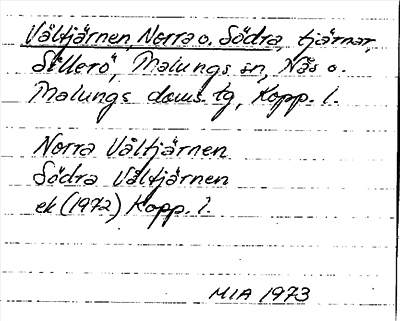 Våltjärnen, Norra o. Södra, tjärnar,
Malungs sn, Nås o.
Malungs doms. tg, Kopp. l.
Norra Våltjärnen
Södra Våltjärnen
ek (1972) Kopp. l.
MIA 1973